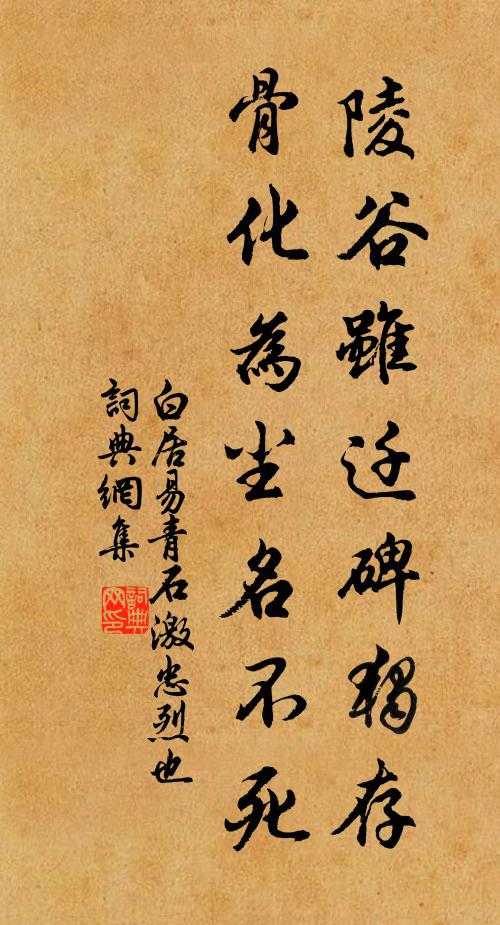 陵谷雖迁碑独存
骨化為尘名不死
白居易青石激忠烈也
詞典網集
詞典
网印